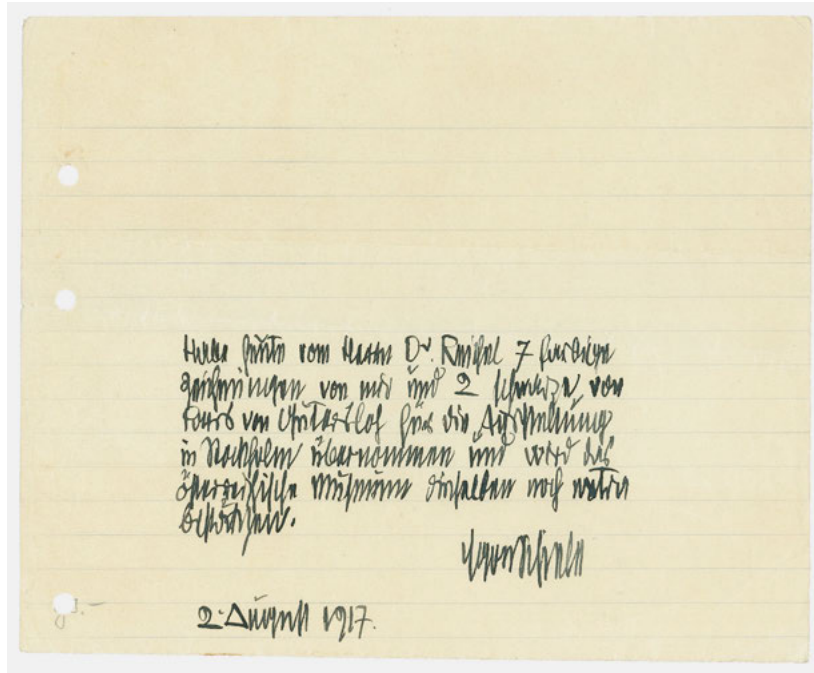 Habe heute vom Herrn Dr. Reichel 7 farbige
Zeichnungen von mir und 2 schwarze von
Paris von Gütersloh für die Ausstellung
in Stockholm übernommen und wird das
österreichische Museum dieselben noch
bestätigen.
Egon Schiele
2. August 1917.